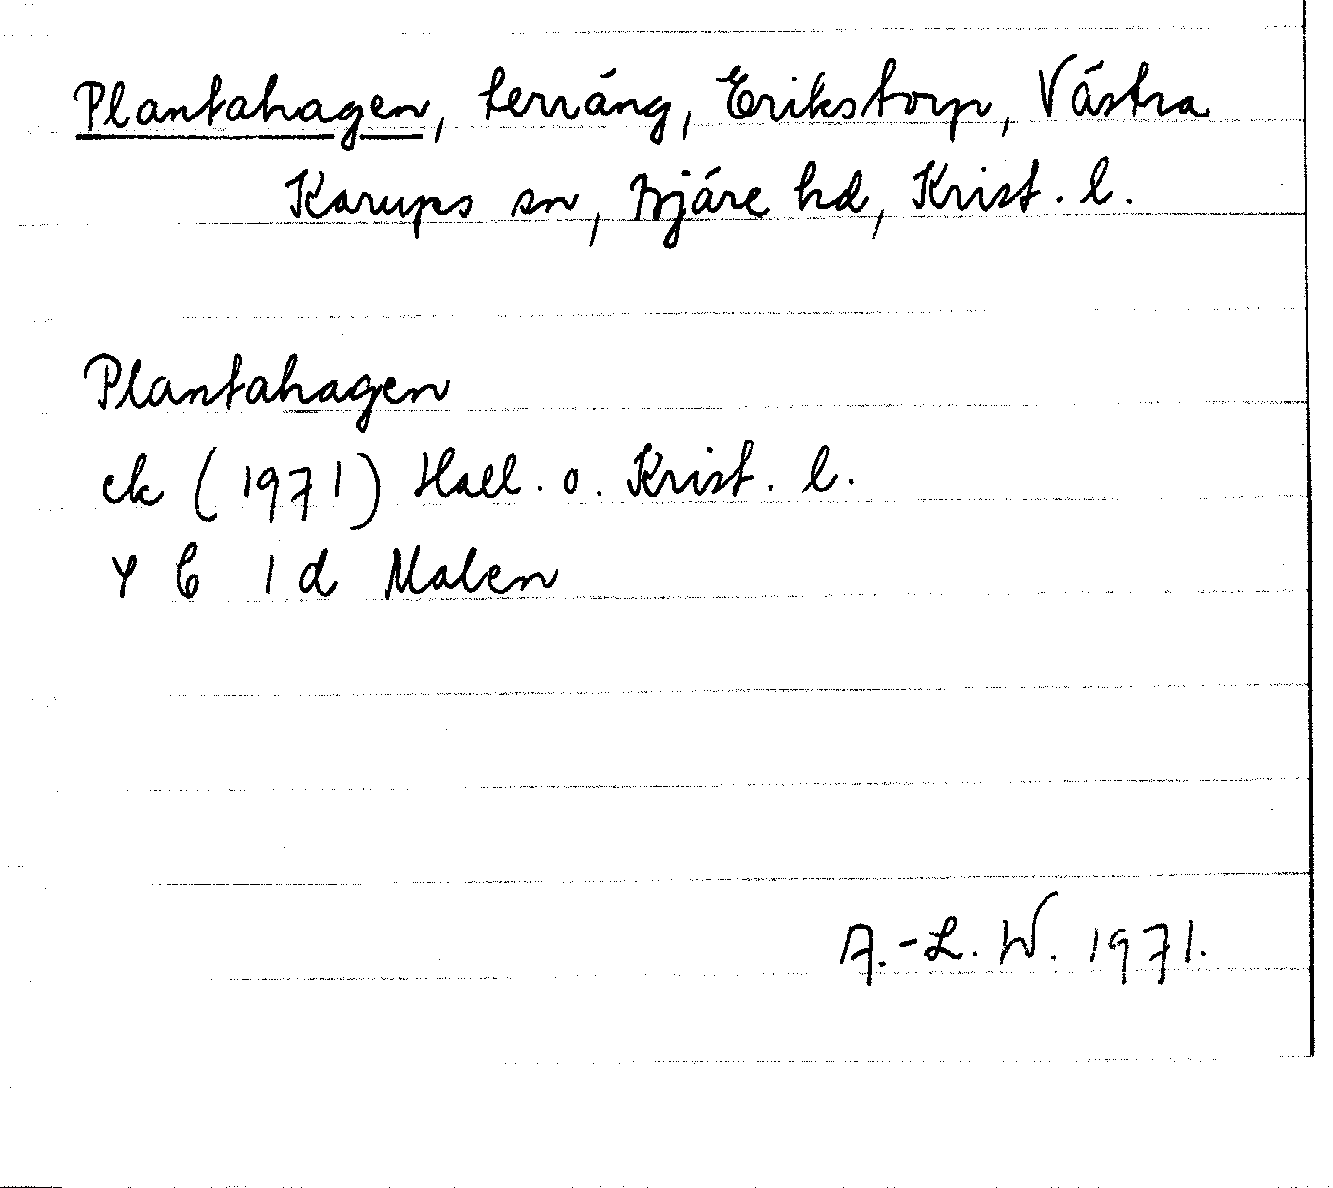 Plantahagen, terräng, Erikstorp, Västra
Karups sn, Bjäre hd, Krist. l.
Plantahagen
ek (1971) Hall. o. Krist. l.
4 C 1 d Malen
A.-L. W. 1971.